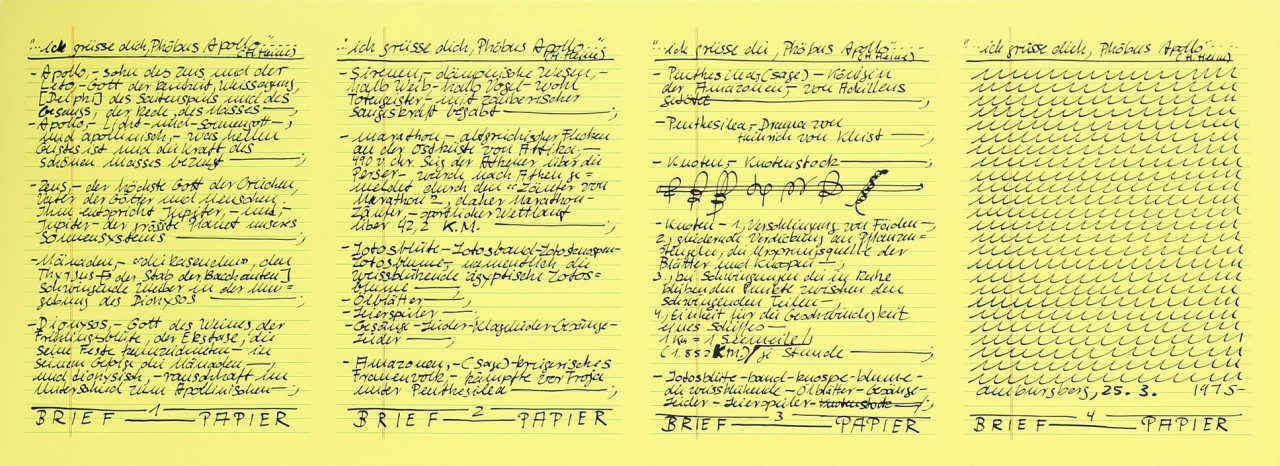 "...ich grüsse dich, Phöbus Apollo"......
(H. Heine)
- Apollo, - sohn des Zeus und der
Leto, - Gott der Reinheit, Weissagung,
[Delphi] des Saitenspiels und des
Gesangs, der Rede, des Masses —;
- Apollo, - Licht- und Sonnengott —;
und apollinisch - was hellen
Geistes ist und die Kraft des
schönen Masses bezeugt —;
- Zeus, - der höchste Gott der Griechen,
Vater der Götter und Menschen,
Ihm entspricht Jupiter, - und;
Jupiter - der grösste Planet unseres
Sonnensystems —;
- Mänaden, - "die Rasenden", den
Thyrsus [der Stab der Bacchanten]
Schwingende Weiber in der Um=
gebung des Dionysos —;
- Dionysos, - Gott des Weines, der
Frühlingsblüte, der Ekstase, die
seine Feste kennzeichneten - in
seinem Gefolge die Mänaden —
und dionysisch, - rauschhaft im
unterschied zum Apollinischen —;
BRIEF — 1 — PAPIER
"...ich grüsse dich, Phöbus Apollo"......
(H. Heine)
- Sirenen, - dämonische Wesen, -
halb Weib - halb Vogel - wohl
Totengeister - mit zauberischer
Sangeskraft begabt —;
- Marathon - altgriechischer Flecken
an der Ostküste von Attika, -
490 v. Chr. Sieg der Athener über die
Perser - wurde nach Athen ge=
meldet durch den "Läufer von
Marathon", daher Marathon-
Läufer, - sportlicher Wettlauf
über 42,2 K.M. —;
- Lotosblüte - Lotosband - Lotosknospen -
Lotosblume - namentlich die
weissblühende ägyptische Lotos=
blume —;
- Ölblätter —;
- Leierspieler —;
- Gesänge - Lieder - Klagelieder - Gesänge -
Lieder —;
- Amazonen, - (Sage) - kriegerisches
Frauenvolk, - kämpfte vor Troja
unter Penthesilea —;
BRIEF — 2 — PAPIER
"...ich grüsse di, Phöbus Apollo"......
(H. Heine)
- Penthesilea, (Sage) - Königin
der Amazonen, - von Achilleus
getötet —;
- Penthesilea, - Drama von
Heinrich von Kleist —;
- Knoten, - Knotenstock —;
- Knoten - 1, Verschlingung von Fäden -,
2, gliedernde Verdickung am Pflanzen=
Stengeln, die Ursprungsquelle der
Blätter und Knospen -
3, bei Schwingungen die in Ruhe
bleibenden Punkte zwischen den
schwingenden Teilen -,
4, Einheit für die Geschwindigkeit
eines Schiffes —
1 Kn = 1 Seemeile/
(1.852 KM)/je Stunde —;
- Lotosblüte - band - knospe - blume -
die weissblühende - Ölblätter - Gesänge -
Lieder - Leierspieler - Knotenstock —;
BRIEF — 3 — PAPIER
"...ich grüsse dich, Phöbus Apollo"......
(H. Heine)
25. 3. 1975-
BRIEF — 4 — PAPIER